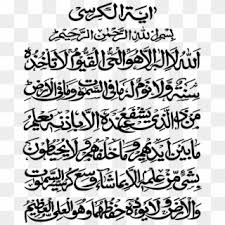 آية الكرسي
بسم الله الرحمن الرحيم
الله لا إله إلا هو الحي القيوم لا تأخذه
سنة ولا نوم له ما في السموت وما في الارض
من ذا الذي يشفع عنده إلا بإذنه يعلم
ما بين أيديهم وما خلفهم ولا يحيطون
بشيء من علمه إلا بما شاء وسع كرسيه السموت
والأرض ولا يؤده حفظهما وهو العلي العظيم